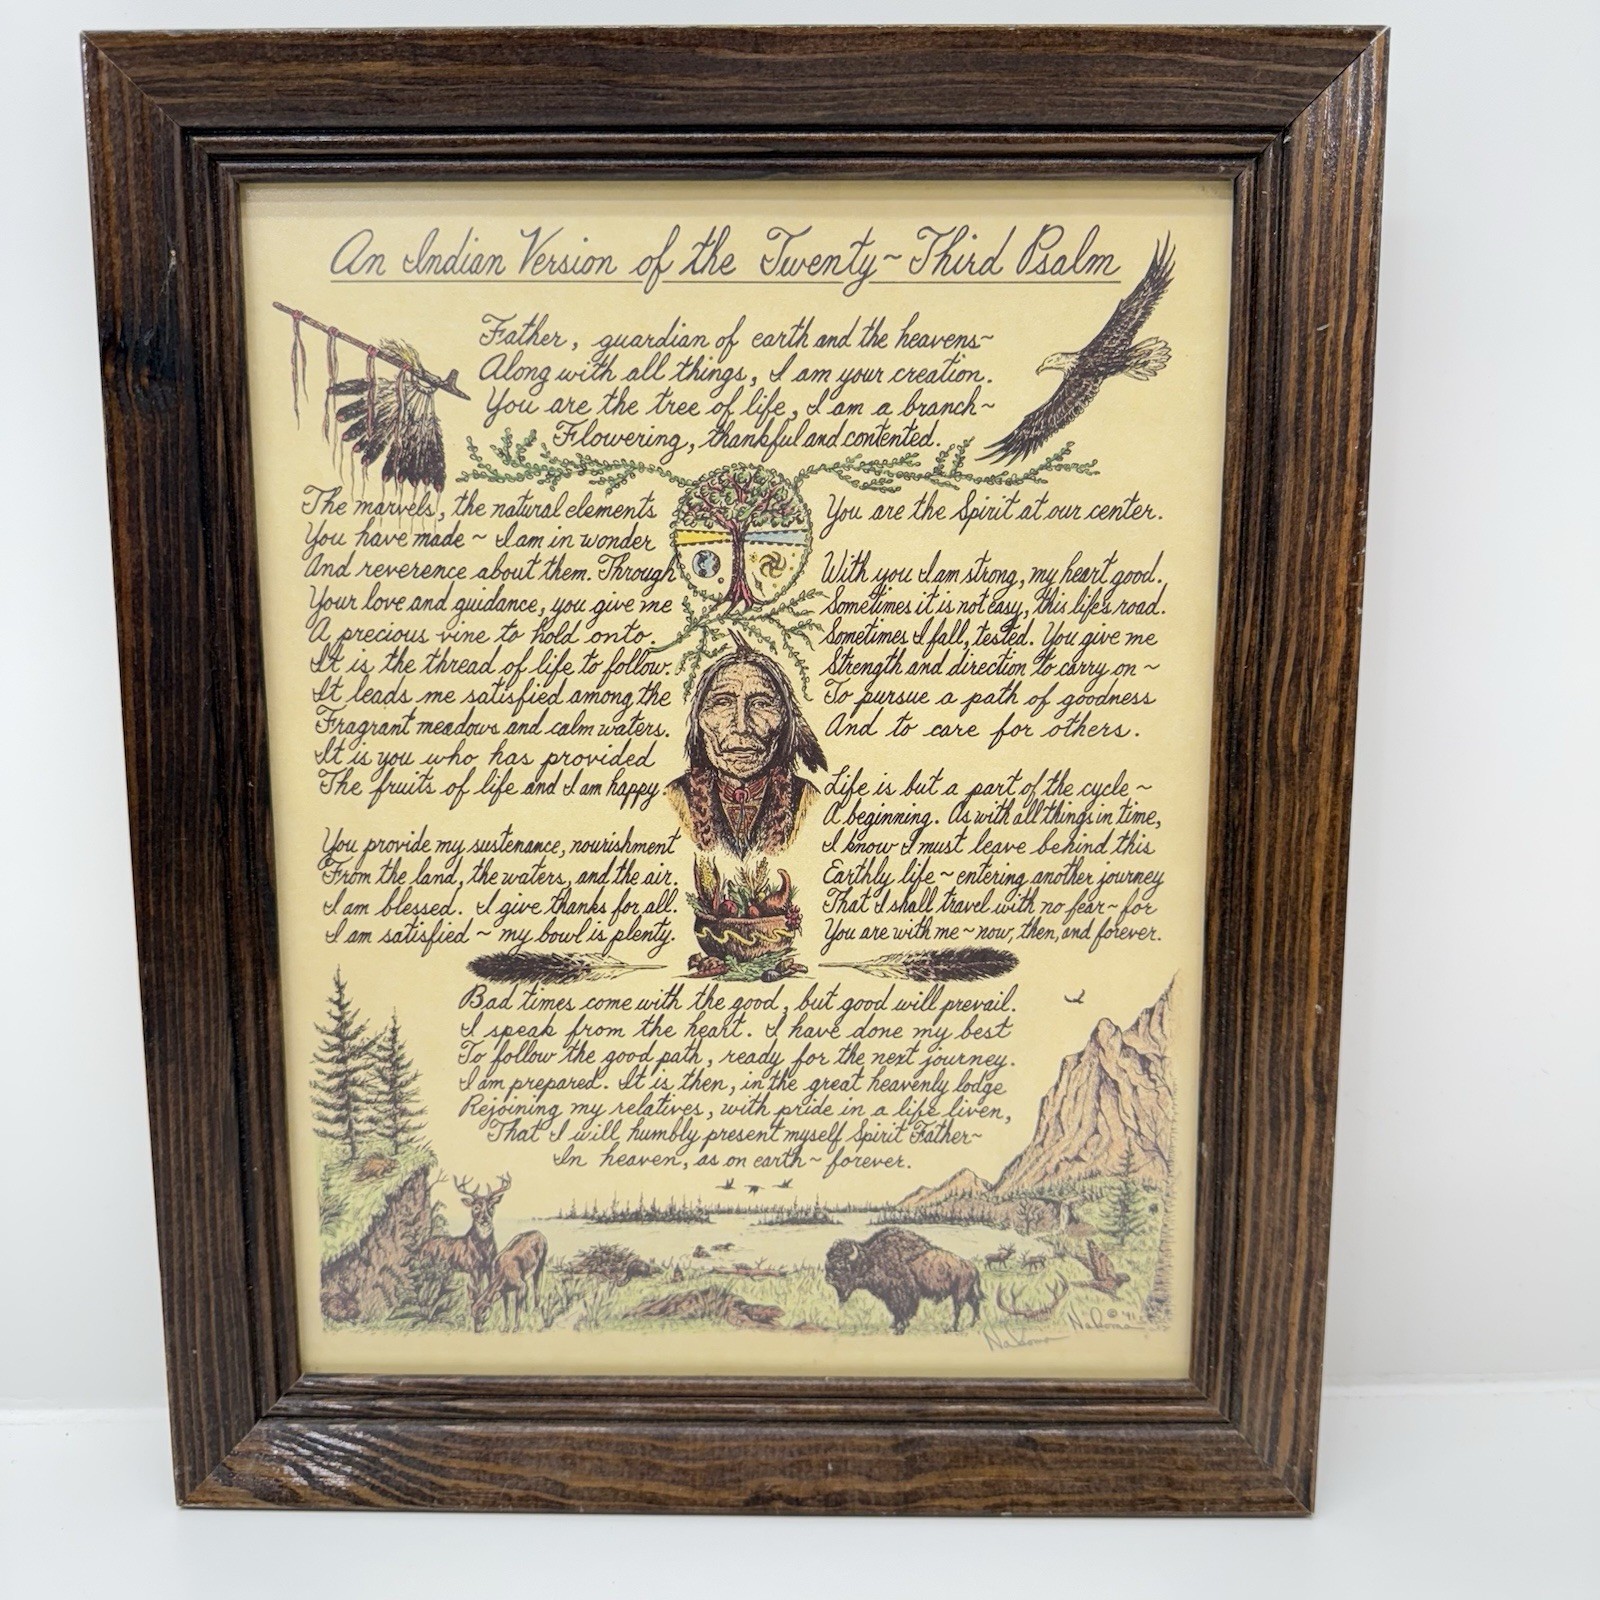 An Indian Version of the Twenty~Third Psalm
Father, guardian of earth and the heavens~
Along with all things, I am your creation.
You are the tree of life, I am a branch~
Flowering, thankful and contented.
The marvels, the natural elements
You have made ~ I am in wonder
And reverence about them. Through
Your love and guidance, you give me
A precious vine to hold onto.
It is the thread of life to follow.
It leads me satisfied among the
Fragrant meadows and calm waters.
It is you who has provided
The fruits of life and I am happy.
You provide my sustenance, nourishment
From the land, the waters, and the air.
I am blessed. I give thanks for all.
I am satisfied ~ my bowl is plenty.
You are the Spirit at our center.
With you I am strong, my heart good.
Sometimes it is not easy, this life's road.
Sometimes I fall, tested. You give me
Strength and direction to carry on ~
To pursue a path of goodness
And to care for others.
Life is but a part of the cycle ~
A beginning. As with all things in time,
I know I must leave behind this
Earthly life ~ entering another journey
That I shall travel with no fear ~ for
You are with me ~ now, then, and forever.
Bad times come with the good, but good will prevail.
I speak from the heart. I have done my best
To follow the good path, ready for the next journey.
I am prepared. It is then, in the great heavenly lodge
Rejoining my relatives, with pride in a life liven,
That I will humbly present myself Spirit Father~
In heaven, as on earth ~ forever.
© '91